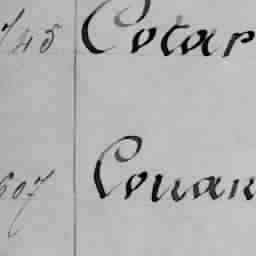 145 Cotar
607 Couan